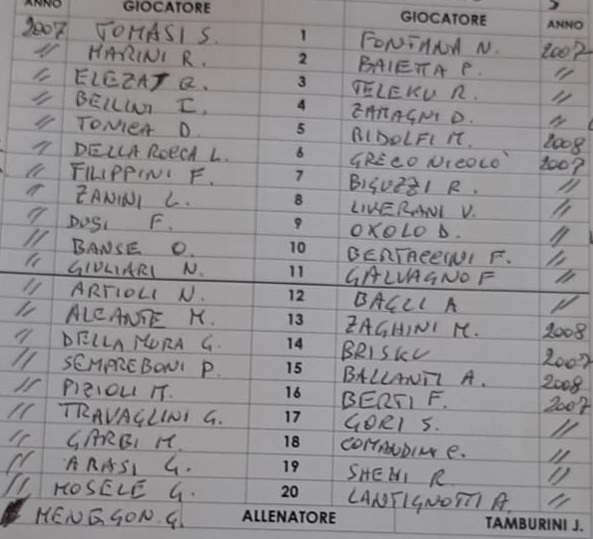 ANNO GIOCATORE GIOCATORE ANNO
2007 TOMASI S. 1 FONTANA N. 2007
" MARINI R. 2 BAIETTA P. "
" ELEZAJ Q. 3 TELEKU R. "
" BELLINI I. 4 ZAMAGNI D. "
" TONICA D. 5 RIDOLFI M. 2008
" DELLA ROCCA L. 6 GRECO NICOLÒ 2007
" FILIPPINI F. 7 BIGUZZI R. "
" ZANINI L. 8 LIVERANI V. "
" DUSI F. 9 OXOLO D. "
" BANSE O. 10 BERTACCINI F. "
" GIULIARI N. 11 GALVAGNO F "
" ARTIOLI N. 12 BAGLI A "
" ALCANTE M. 13 ZAGHINI M. 2008
" DELLA MURA G. 14 BRISKU 2007
" SEMPREBONI P. 15 BALLANTI A. 2008
" PIZIOLI M. 16 BERTI F. 2007
" TRAVAGLINI G. 17 GORI S. "
" GARBI M. 18 COMANDINI C. "
" ARASI G. 19 SHEHI R "
" MOSELE G. 20 LANTIGNOTTI A. "
MENEGON G. ALLENATORE TAMBURINI J.